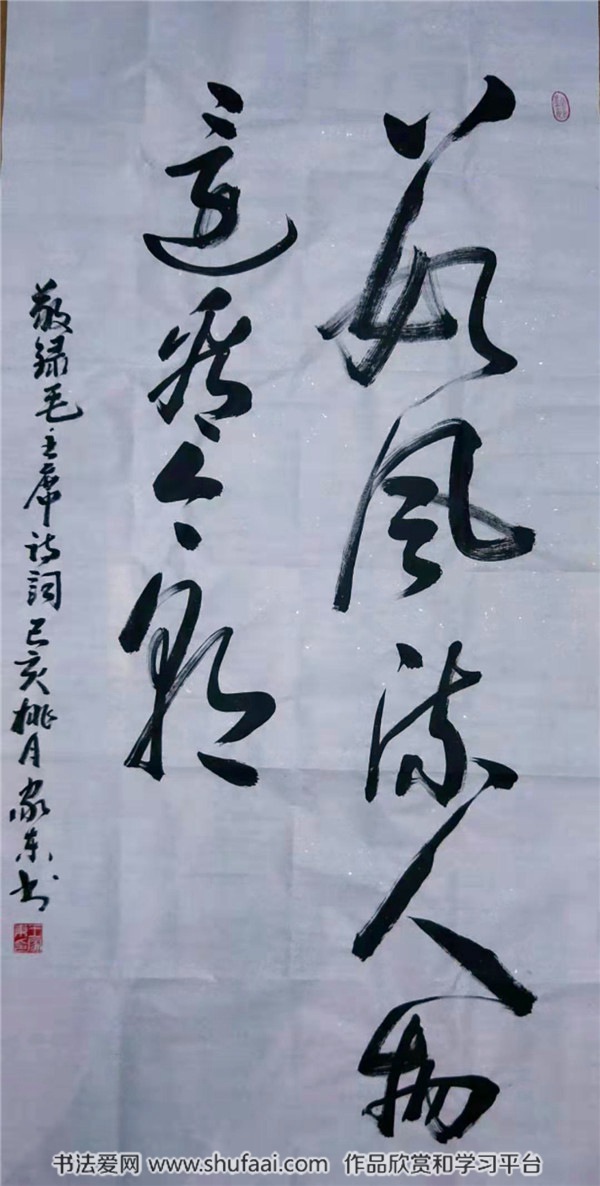 数风流人物
还看今朝
敬録毛主席诗词己亥桃月家东书
书法爱网 www.shufaai.com 作品欣赏和学习平台